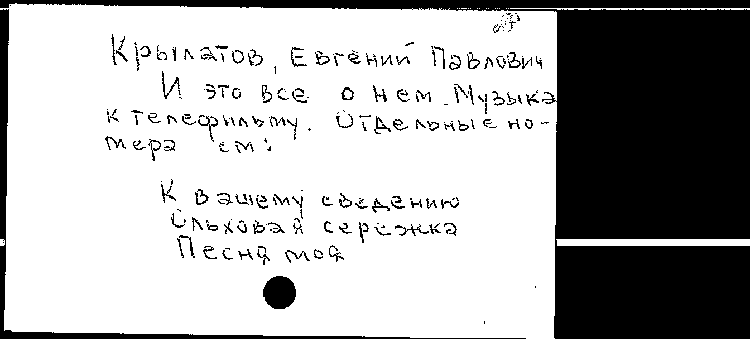 Крылатов, Евгений Павлович
И это все о нем. Музыка
к телефильму. Отдельные но-
мера см:
К вашему сведению
Ольховая сережка
Песня моя